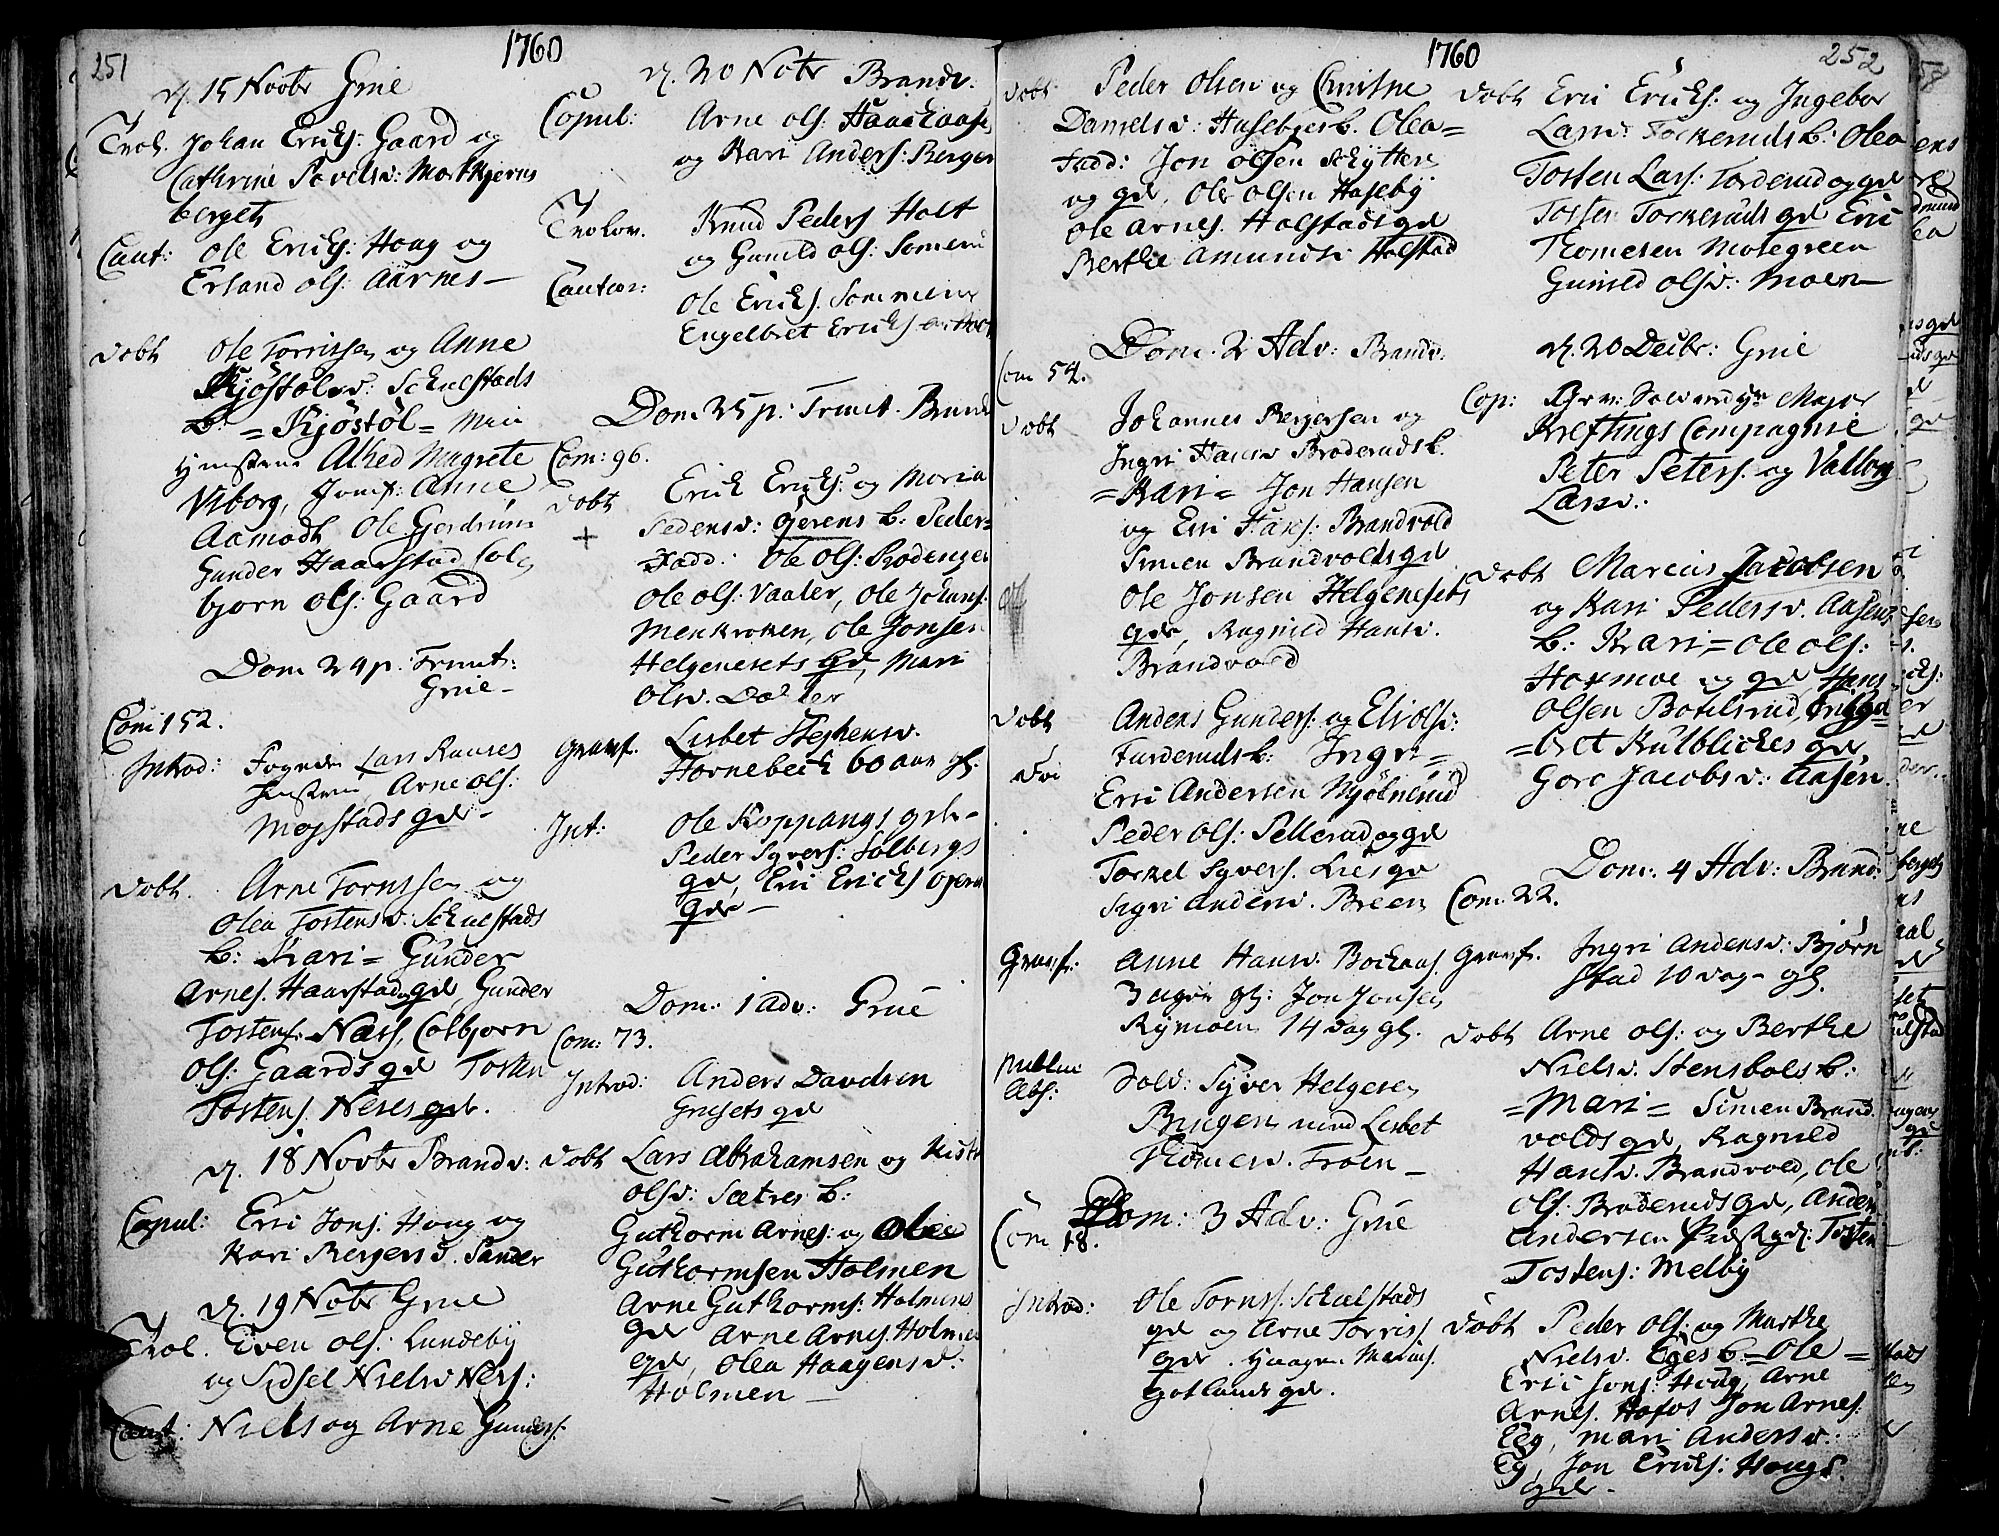 251
1760
d. 15 Novbr Grue
Trol. Johan Erichs: Gaard og
Cathrine Povelsd: Mortkjerns
berget
Caut: Ole Erichs: Houg og
Erland Ols: Aarnes—
Døbt Ole Torrissen og Anne
Kjøstølsd: Schulstads
b. = Kjøstøl =
Alhed Magrete
Viborg, Jomf: Anne
Aamodt Ole Gjerdrum
Gunder Haarstad Col
bjørn Ols: Gaard
Dom 24 p. Trinit:
Grue—
Com 152.
Introd: Fogden Lars
Arne Ols:
Mopstads qde—
Døbt. Arne Torrissen og
Olea Tostensd: Schulstads
b: Kari = Gunder
Arnes. Haarstad qde, Gunder
Tostens: Næss, Colbjørn
Ols: Gaards qde Tosten
Tostens. Neses qde.
d. 18 Novbr Brandv:
Copul: Eric Jons. Houg og
Kari Bergersd. Sander
d. 19 Nobr Grue
Trol. Even Ols: Lundeby
og Sidsel Nielsd Ness:
Caut: Niels og Arne Gunders.
d. 20 Nobr Brandv.
Copul: Arne Ols:
og Kari Anders: Berger
Trolov. Knud Peders Holt
og Gunild Ols:
Cautor: Ole Erichs.
Engelbret Erichs
Dom. 25 p. Trinit. Brandv
Com: 96.
Døbt Erich Erichs: og Maria
+ Pedersd: Øierens b: Peder=
Fadd: Ole Ols: Rodenger
Ole Ols: Vaaler, Ole Johans:
Menkroken, Ole Jonsen
Helgenesets qd, Mari
Olsd.
Gravf. Lisbet Stephensd.
Hornebeck 60 aar gl:
Int: Ole Koppangs qde—
Peder Syvers: Solbergs
qde, Eric Erichs
qde—
Dom: 1 Adv: Grue
Com: 73.
Introd: Anders Davidsen
Grisets qde
Døbt Lars Abrahamsen og
Olsd: Sætres b:
Guthorm Arnes: og Olea
Guthormsen Holmen
Arne Guthorms: Holmens
qde Arne Arnes. Holmen
qde, Olea Haagensd:
Holmen—
1760
252
Døbt Peder Olsen og Christne
Danielsd: Hasebyes b. Olea=
Fadd: Jon Olsen Schytter
og qde, Ole Olsen Haseby
Ole Arnes. Holstads qde
Berthe Amundsd Holstad
Dom. 2 Adv: Brandv:
Com 54.
Døbt Johannes Bergersen og
Ingri Hansd Broderuds b.
= Kari = Jon Hansen
og Eric Hans: Brandvold
Simen Brandvolds qde
Ole Jonsen Helgenesets
qde, Ragnild Hansd.
Brandvold
Døbt Anders Gunders: og Eli Olsd:
Furderuds b: Ingri=
Eric Andersen Mjølnerud
Peder Ols: Pellerud og qde
Torkel Syvers. Lies qde
Sigri Andersd. Breen
Gravf: Anne Hansd.
3 uger gl: Jon Jonsen
Rymoen 14 dag gl.
Publice
Abs: Sold: Syver Helgesen
Bringen med Lisbet
Thomesd. Froen—
Dom: 3 Adv: Grue
Com 18.
Introd: Ole Torriss. Schulstads
qde og Arne Torriss
qde. Haagen
Gotlands qde.
Døbt Eric Erichs: og Ingebor
Larsd Torkeruds b: Olea
Tosten Lars: Torderud og qde
Tosten Torkeruds qde Eric
Thomesen Mosegreen
Gunild Olsd: Moen—
d. 20 Decbr: Grue
Cop: Major
Kreftings Compagnie
Peter Peters. og Valborg
Larsd:
Døbt Marcus Jacobsen
og Kari Pedersd. Aasens
b: Kari = Ole Ols:
Hormoe og qde Hans
Olsen Botilsrud,
=bret Kulblickes qde
Gore Jacobsd: Aasen
Dom: 4 Adv: Brand:
Com. 22.
Gravf. Ingri Andersd: Bjørn
stad 10 dag gl.
Døbt Arne Ols: og Berthe
Nielsd. Stensbols b:
= Mari = Simen Brand
volds qde, Ragnild
Hansd. Brandvold, Ole
Ols: Broderuds qde, Anders
Andersen Præstgd: Tosten
Tostens: Melby
Døbt Peder Ols: og Marthe
Nielsd. Eges b. = Ole =
Eric Jons: Houg, Arne
Arnes. Hofos Jon Arnes:
Eeg, Mari Andersd:
Eg, Jon Erichs: Hougs
qde—